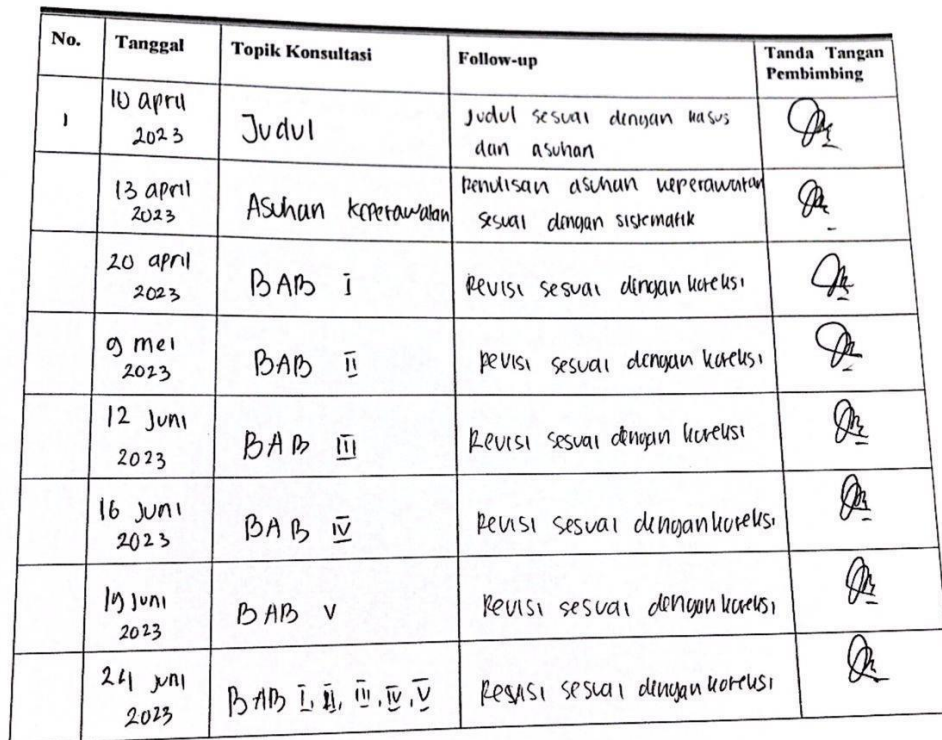 No. Tanggal Topik Konsultasi Follow-up Tanda Tangan
Pembimbing
1 10 april Judul Judul sesuai dengan kasus
2023 dan asuhan
13 april Asuhan keperawatan penulisan asuhan keperawatan
2023 sesuai dengan sistematik
20 april BAB I Revisi sesuai dengan koreksi
2023
9 mei BAB II Revisi sesuai dengan koreksi
2023
12 Juni BAB III Revisi sesuai dengan koreksi
2023
16 Juni BAB IV Revisi sesuai dengan koreksi
2023
19 Juni BAB V Revisi sesuai dengan koreksi
2023
24 Juni BAB I, II, III, IV, V Revisi sesuai dengan koreksi
2023